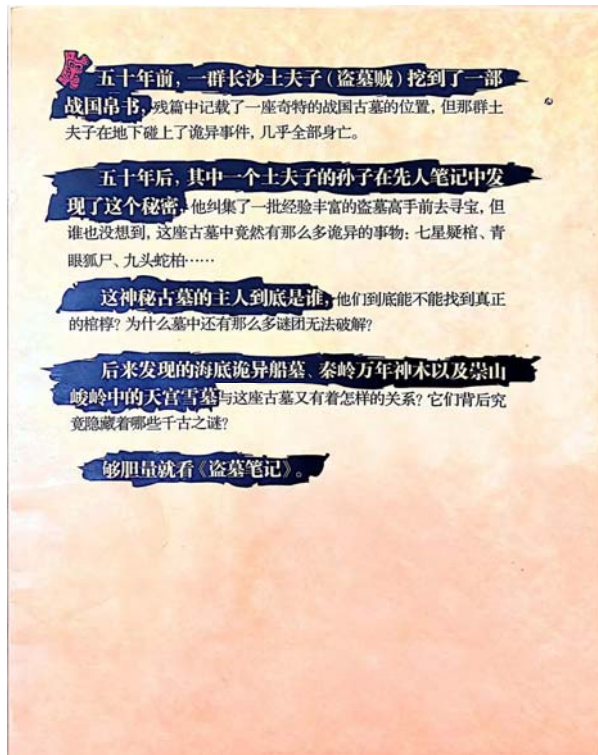 五十年前，一群长沙土夫子（盗墓贼）挖到了一部
战国帛书，残篇中记载了一座奇特的战国古墓的位置，但那群土
夫子在地下碰上了诡异事件，几乎全部身亡。
五十年后，其中一个土夫子的孙子在先人笔记中发
现了这个秘密，他纠集了一批经验丰富的盗墓高手前去寻宝，但
谁也没想到，这座古墓中竟然有那么多诡异的事物：七星疑棺、青
眼狐尸、九头蛇柏……
这神秘古墓的主人到底是谁，他们到底能不能找到真正
的棺椁？为什么墓中还有那么多谜团无法破解？
后来发现的海底诡异船墓、秦岭万年神木以及崇山
峻岭中的天宫雪墓与这座古墓又有着怎样的关系？它们背后究
竟隐藏着哪些千古之谜？
够胆量就看《盗墓笔记》。